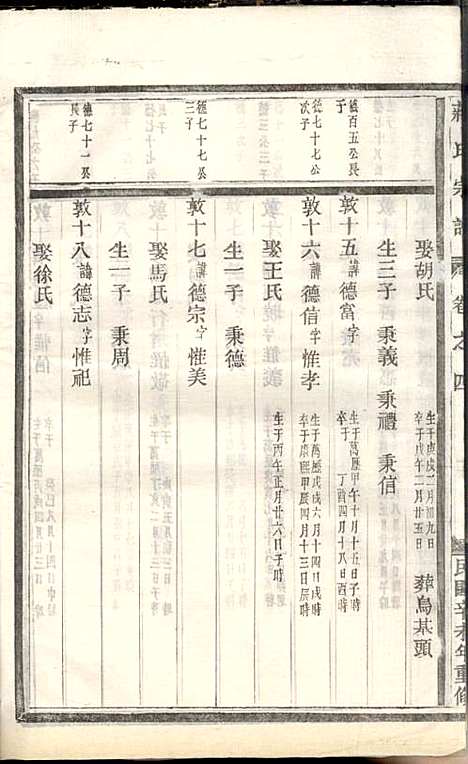 氏宗譜 卷之四 民國辛未年重修
娶胡氏 生于庚戌二月卅九日 卒于戊午二月廿五日 葬烏基頭
生三子 秉義 秉禮 秉信
德百五公長子
敦十五 諱德富 字 生于萬歷甲午十月十五日子時 卒于丁酉四月十八日酉時
德七十七公次子
敦十六 諱德信 字惟孝 生于萬歷戊戌六月十四日戌時 卒于康熙甲辰四月十三日戌時
娶王氏 生于丙午正月廿六日子時
生一子 秉德
德七十七公三子
敦十七 諱德宗 字惟美
娶馬氏
生一子 秉周
德七十一公長子
敦十八 諱德志 字惟祀
娶徐氏